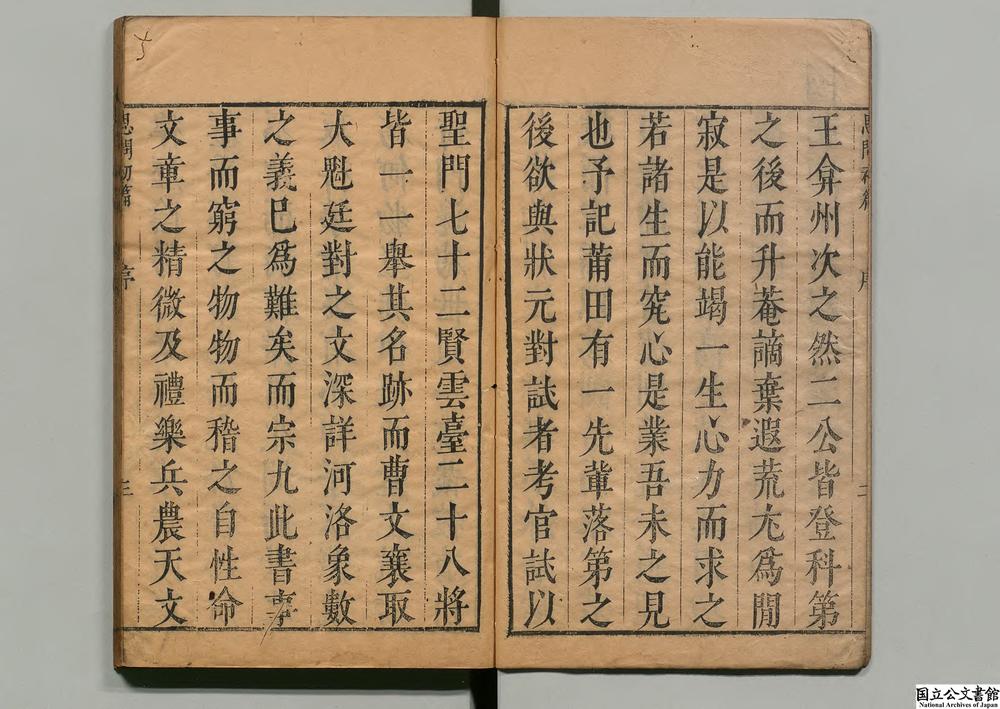 王弇州次之然二公皆登科第
之後而升菴謫棄遐荒尢爲閒
寂是以能竭一生心力而求之
若諸生而究心是業吾未之見
也予記莆田有一先軰落第之
後欲與狀元對試者考官試以
聖門七十二賢雲臺二十八將
皆一一舉其名跡而曹文襄取
大魁廷對之文深詳河洛象數
之義巳爲難矣而宗九此書事
事而窮之物物而稽之自性命
文章之精微及禮樂兵農天文
思問初篇
序
三
国立公文書館
National Archives of Japan